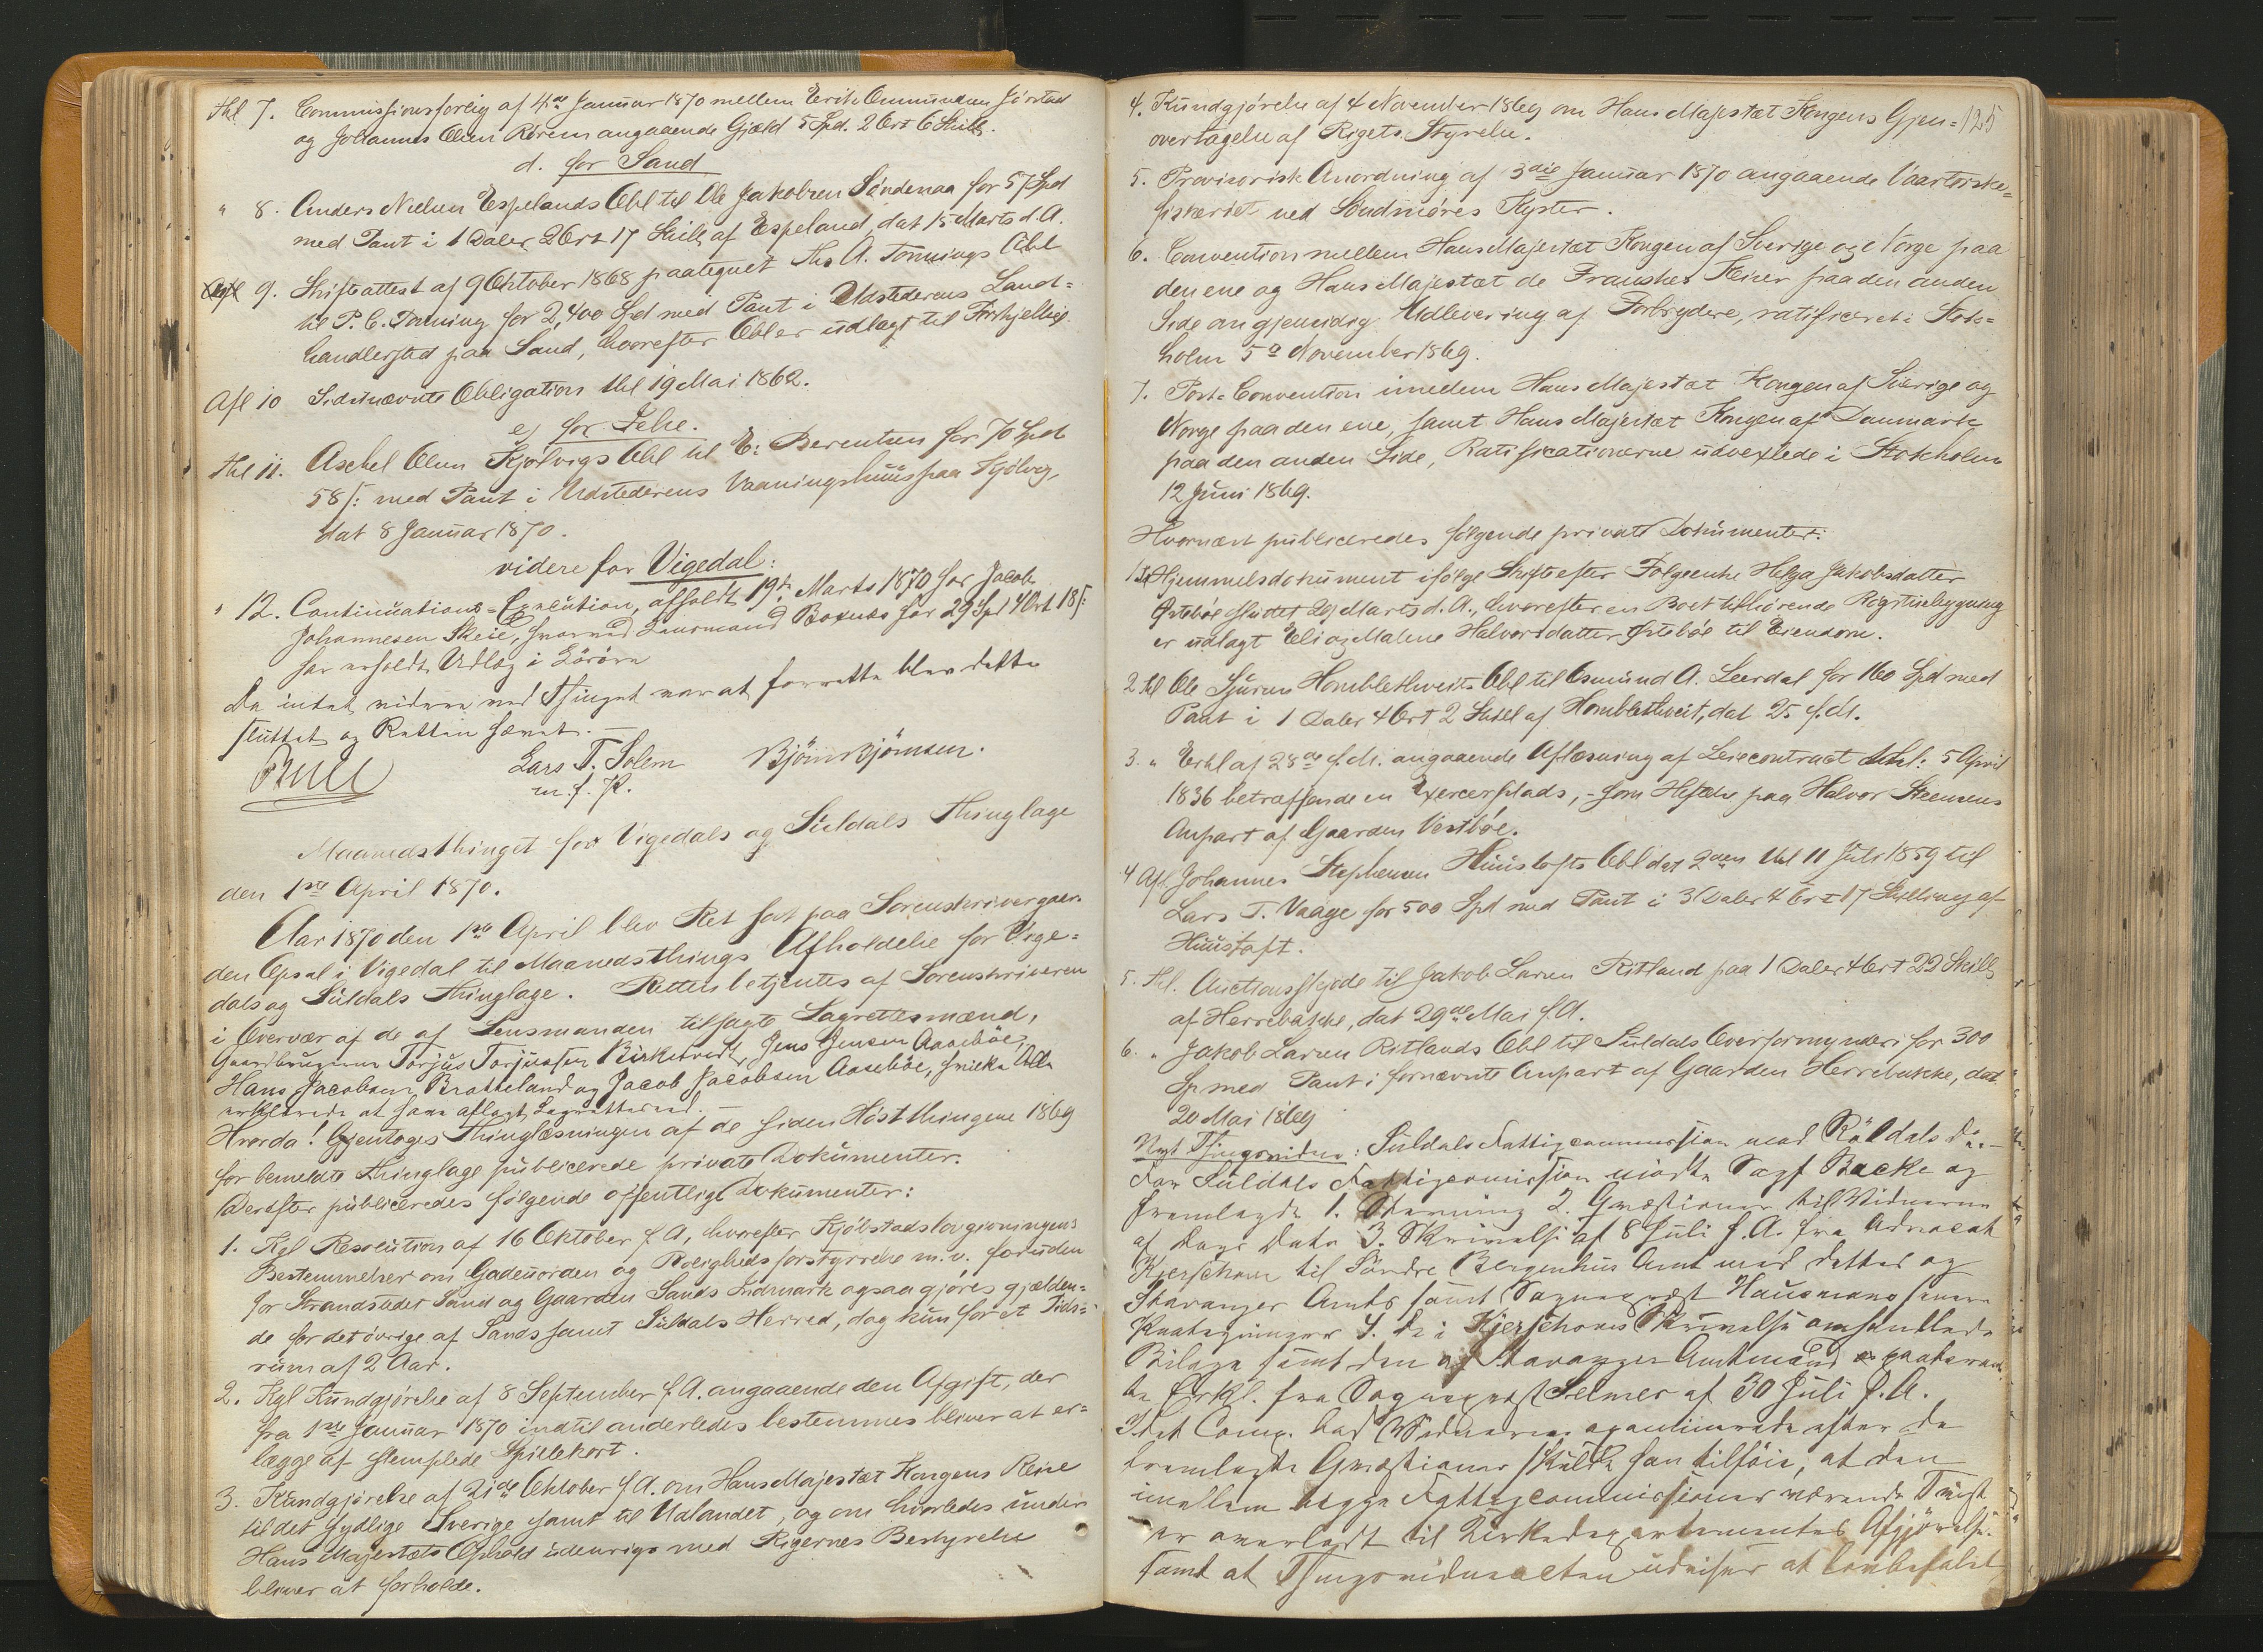 thl 7. Commissionsforlig af 4de Januar 1870 mellem Erik Ommundsen Jørstad
og Johannes Olsen Rørem angaaende Gjæld 5 Spd. 2 Ort 6 Skill.
d. for Sand
" 8. Anders Nielsen Espelands Obl til Ole Jakobsen Søndenaa for 57 Spd
med Pant i 1 Daler 2 Ort 17 Skill af Espeland, dat 15 Marts d. A.
9. Skifteattest af 9 Oktober 1868 paategnet Ths A. Tonnings Obl
til P. C. Tonning for 2,400 Spd med Pant i Udstederens Land=
handlersted paa Sand, hvorefter Obl er udlagt til
Afl 10 Sidstnævnte Obligation thl 19 Mai 1862.
e) for Jelse.
thl 11. Aschel Olsen Kjølvigs Obl til E: Berentsen for 70 Spd
58 s: med Pant i Udstederens Vaaningshuus paa Kjølvig,
dat 8 Januar 1870.
videre for Vigedal:
" 12. Continuations-Execution, afholdt 19de Marts 1870 for Jacob
Johannesen Skeie, hvorved Lensmand for 29 Spd 4 Ort 18 s:
har erholdt Udlæg i Løsøre
Da intet videre ved Thinget var at forrette blev dette
sluttet og Retten hævet. —
Bull Lars T. Solem Bjørn Bjørnsen.
m. f. P.
Maanedsthinget for Vigedals og Suldals Thinglage
den 1ste April 1870.
Aar 1870 den 1ste April blev Ret sat paa Sorenskrivergaar-
den Opsal i Vigedal til Maanedsthings Afholdelse for Vige=
dals og Suldals Thinglage. Retten betjentes af Sorenskriveren
i Overvær af de af Lensmanden tilsagte Lagrettesmænd,
Gaardbrugerne Torjus Torjussen Birketvedt, Jens Jensen Aasebøe,
Hans Jacobsen Bratteland og Jacob Jacobsen Aasebøe, hvilke Alle
erklærede at have aflagt Lagretteseed. —
Hvorda! Gjentoges Thinglæsningen af de siden Høstthingene 1869
for bemeldte thinglage publicerede private Dokumenter.
Derefter publiceredes følgende offentlige Dokumenter:
1. Kgl Resolution af 16 Oktober f A, hvorefter Kjøbstadslovgivningens
Bestemmelser om Gadeuorden og Roligheds forstyrrelse m. v. foruden
for Strandstedet Sand og Gaarden Sands Indmark ogsaa gjøres gjælden=
de for det øvrige af Sands samt Suldals Herred, dog kun for et Tids=
rum af 2 Aar.
2. Kgl Kundgjørelse af 8 September f A. angaaende den Afgift, der
fra 1ste Januar 1870 indtil anderledes bestemmes bliver at er=
lægge af stemplede Spillekort.
3. Kundgjørelse af 21de Oktober f A. om Hans Majestæt Kongens Reise
til det sydlige Sverige samt til Udlandet, og om hvorledes under
Hans Majestæts Ophold udenrigs med Rigernes Bestyrelse
bliver at forholde.
125
4. Kundgjørelse af 4 November 1869 om Hans Majestæt Kongens Gjen=
overtagelse af Rigets Styrelse.
5. Provisorisk Anordning af 3die Januar 1870 angaaende Vaartorske=
fiskeriet ved Søndmøres Kyster.
6. Convention mellem Hans Majestæt Kongen af Sverige og Norge paa
den ene og Hans Majestæt de Franskes Keiser paa den anden
Side om gjensidig Udlevering af Forbrydere, ratificeret i Stok=
holm 5te November 1869.
7. Post-Convention imellem Hans Majestæt Kongen af Sverige og
Norge paa den ene, samt Hans Majestæt Kongen af Danmark
paa den anden Side, Ratificationerne udvexlede i Stokholm
12 Juni 1869.
Hvornæst publiceredes følgende private Dokumenter:
1 Hjemmelsdokument ifølge Skifte efter Følgeenke Helga Jakobsdatter
Østebøe sluttet 29 Marts d. A., hvorefter en Boet tilhørende Røgstuebygning
er udlagt Eli og Malene Halvorsdatter Østebøe til Eiendom.
2 thl Ole Sjursen Homblethveits Obl til Osmund A. Leerdal for 160 Spd med
Pant i 1 Daler 4 Ort 2 Skill af Homblethveit, dat 25 f. M.
3. " Erkl af 28de f. M. angaaende Aflæsning af Leiecontract thl: 5 April
1836 betræffende en Exercerplads, - som Heftelse paa Halvor Steensens
Anpart af Gaarden Vestbøe.
4 Afl Johannes Stephensen Huustofts Obl dat 2den thl 11 Juli 1859 til
Lars T. Vaage for 500 Spd med Pant i 3 Daler 4 Ort 17 Skilling af
Huustoft.
5. thl. Auctionsskjøde til Jakob Larsen Ritland paa 1 Daler 4 Ort 22 Skill
af Herrebakke, dat 29de Mai f A.
6. " Jakob Larsen Ritlands Obl til Suldals Overformynderi for 300
Sp med Pant i fornævnte Anpart af Gaarden Herrebakke, dat
20 Mai 1869
Nyt Thingsvidne: Suldals Fattigcommission mod Røldals do. —
For Suldals Fattigcommission mødte Sagf Backe og
fremlagde 1. Stevning 2. Qvæstioner til Vidnerne
af Dags Dato 3. Skrivelse af 8 Juli f. A. fra Advocat
Kjerschow til Søndre Bergenhus Amt med dettes og
Stavanger Amts samt Sognepræst Hausmans
Paategninger 4. de i Kjerschows Skrivelse omhandlede
Bilage samt den af Stavanger Amtmand
Erkl. fra Sognepræst Selmer af 30 Juli f. A.
Idet Comp. bad Vidnerne examinerede efter de
fremlagte Qvæstioner skulde han tilføie, at den
imellem begge Fattigcommissioner værende Tvist
er overladt til Kirkedepartementets Afgjørelse.
samt at Thingsvidneacten udvises at